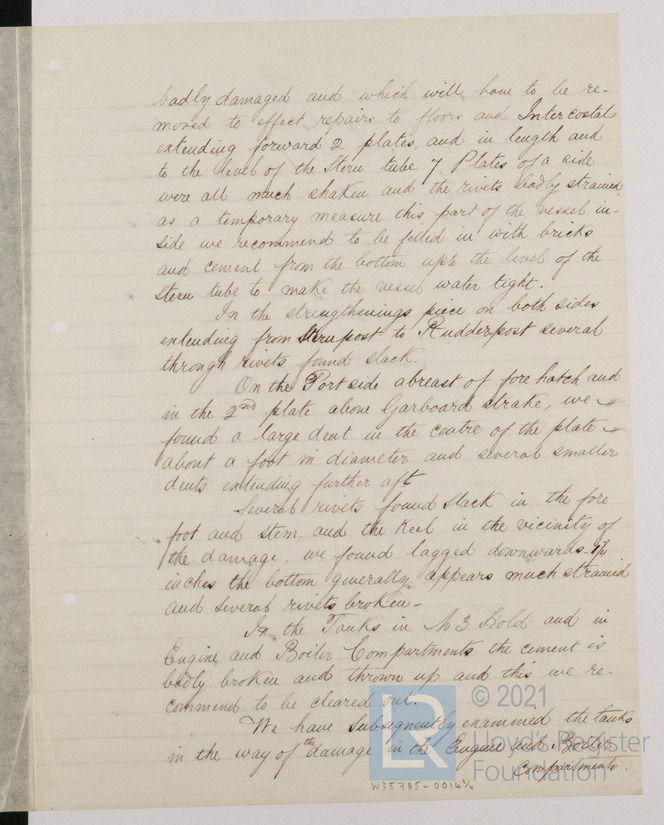 badly damaged and which will have to be re-
moved to effect repairs to floors and Intercostals
extending forward 2 plates, and in length and
to the level of the Stern tube 7 Plates of a side
were all much shaken and the rivets badly strained
as a temporary measure this part of the vessel in-
side we recommend to be filled in with bricks
and cement from the bottom upto the level of the
Stern tube to make the vessel water tight.
In the strengthenings piece on both sides
extending from Sternpost to Rudderpost several
through rivets found slack.
On the Port side abreast of fore hatch and
in the 2nd plate above Garboard strake, we
found a large dent in the centre of the plate
about a foot in diameter and several smaller
dents extending further aft
Several rivets found slack in the fore
foot and stem, and the Keel in the vicinity of
the damage, we found lagged downwards
inches the bottom generally appears much strained
and several rivets broken-
In the Tanks in No 3 Hold and in
Engine and Boiler Compartments the cement is
badly broken and thrown up and this we re-
commend to be cleared out.
We have subsequently examined the tanks
in the way of the damage in the Engine and Boiler
Compartments.
W35785-0014 1/4
© 2021
Lloyd's Register
Foundation
LR